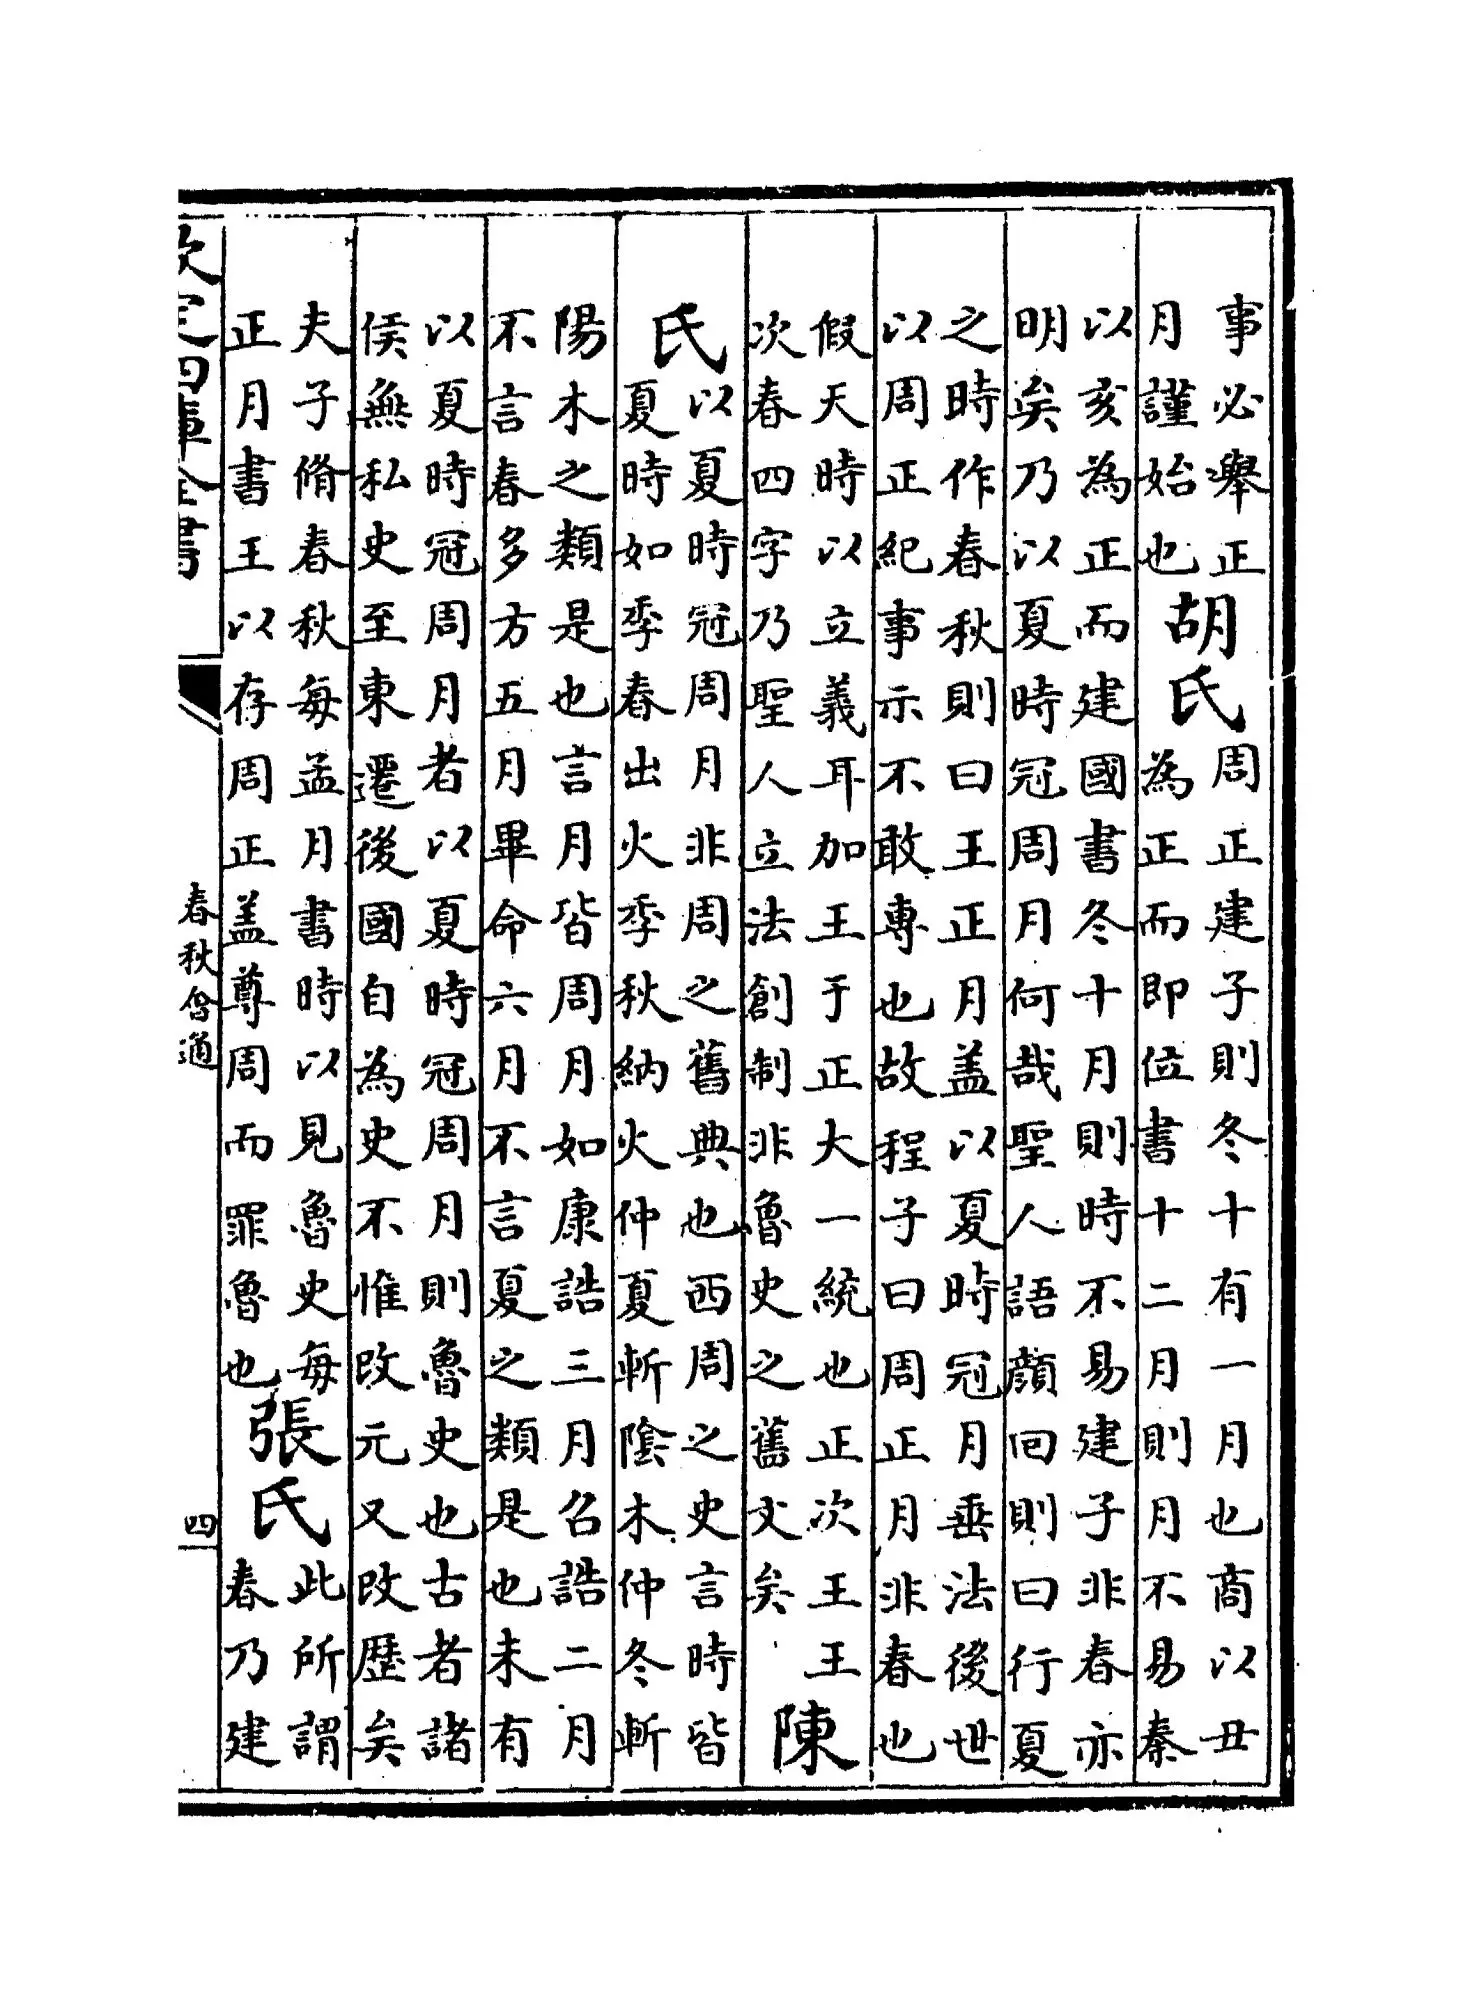 事必舉正
月謹始也
胡氏
周正建子則冬十有一月也商以丑
為正而即位書十二月則月不易秦
以亥為正而建國書冬十月則時不易建子非春亦
明矣乃以夏時冠周月何哉聖人語顔回則曰行夏
之時作春秋則曰王正月盖以夏時冠月垂法後世
以周正紀事示不敢專也故程子曰周正月非春也
假天時以立義耳加王于正大一統也正次王王
次春四字乃聖人立法創制非魯史之舊文矣
陳
氏
以夏時冠周月非周之舊典也西周之史言時皆
夏時如季春出火季秋納火仲夏斬陰木仲冬斬
陽木之類是也言月皆周月如康誥三月召誥二月
不言春多方五月畢命六月不言夏之類是也未有
以夏時冠周月者以夏時冠周月則魯史也古者諸
侯無私史至東遷後國自為史不惟改元又改歴矣
夫子脩春秋每孟月書時以見魯史每
正月書王以存周正盖尊周而罪魯也
張氏
此所謂
春乃建
欽定四庫全書
春秋㑹通
四